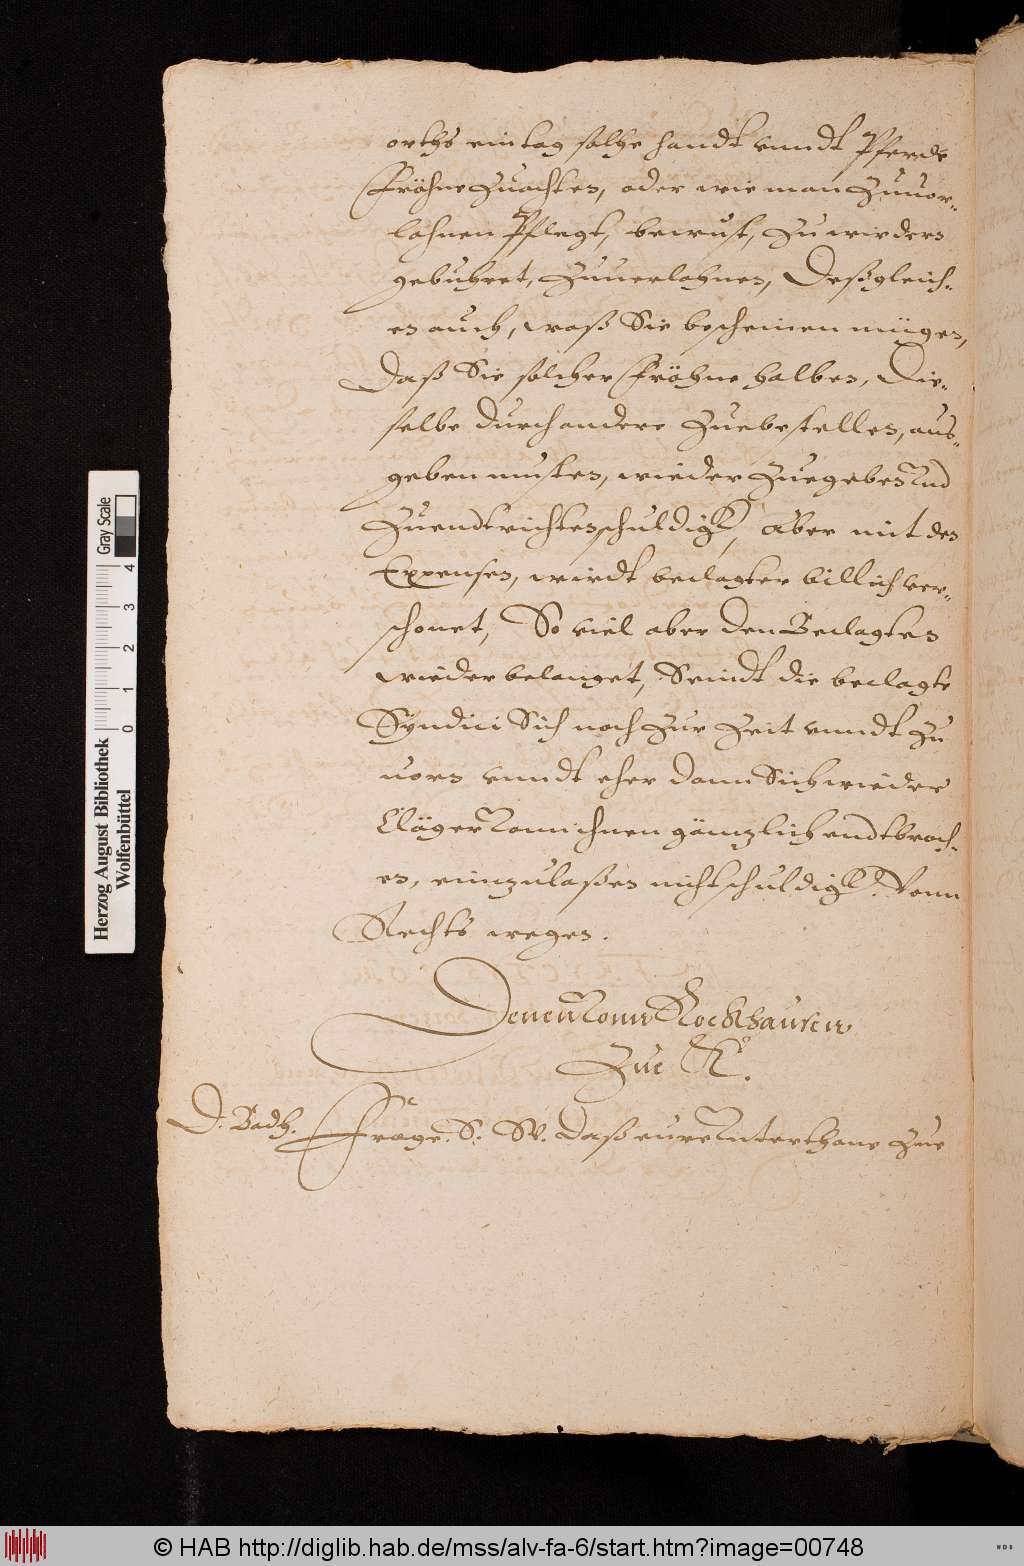 orths ein tag solche handt unndt Pferde
Fröhne zuachten, oder wie man zuuor-
lohnen Pflegt, bewust, zu wieders
gebuhret, zuuerlohnen, Deßgleich-
en auch, waß Sie bescheinen mügen,
daß Sie solcher Fröhne halben, Die-
selbe durch andere zuebestellen, aus-
geben musten, wieder zuegeben Und
zuendtrichten schuldigk, aber mit den
Expensen, wirdt beclagter billich ver-
schonet, So viel aber den Beclagten
wieder belanget, Seindt die beclagte
Syndici Sich noch zur zeit unndt zu
uorn unndt eher dann Sich wieder
Cläger Vonn ihnen gäntzlich endtbroch-
en, einzulaßen nicht schuldigk. Vonn
Rechts wegen.
Denen Vonn Rockhausen
Zue K.
D. Bach. Frage. S. W. Daß eure Unterthane zue
Herzog August Bibliothek
Wolfenbüttel
Gray Scale
0 1 2 3 4
© HAB http://diglib.hab.de/mss/alv-fa-6/start.htm?image=00748
WDB